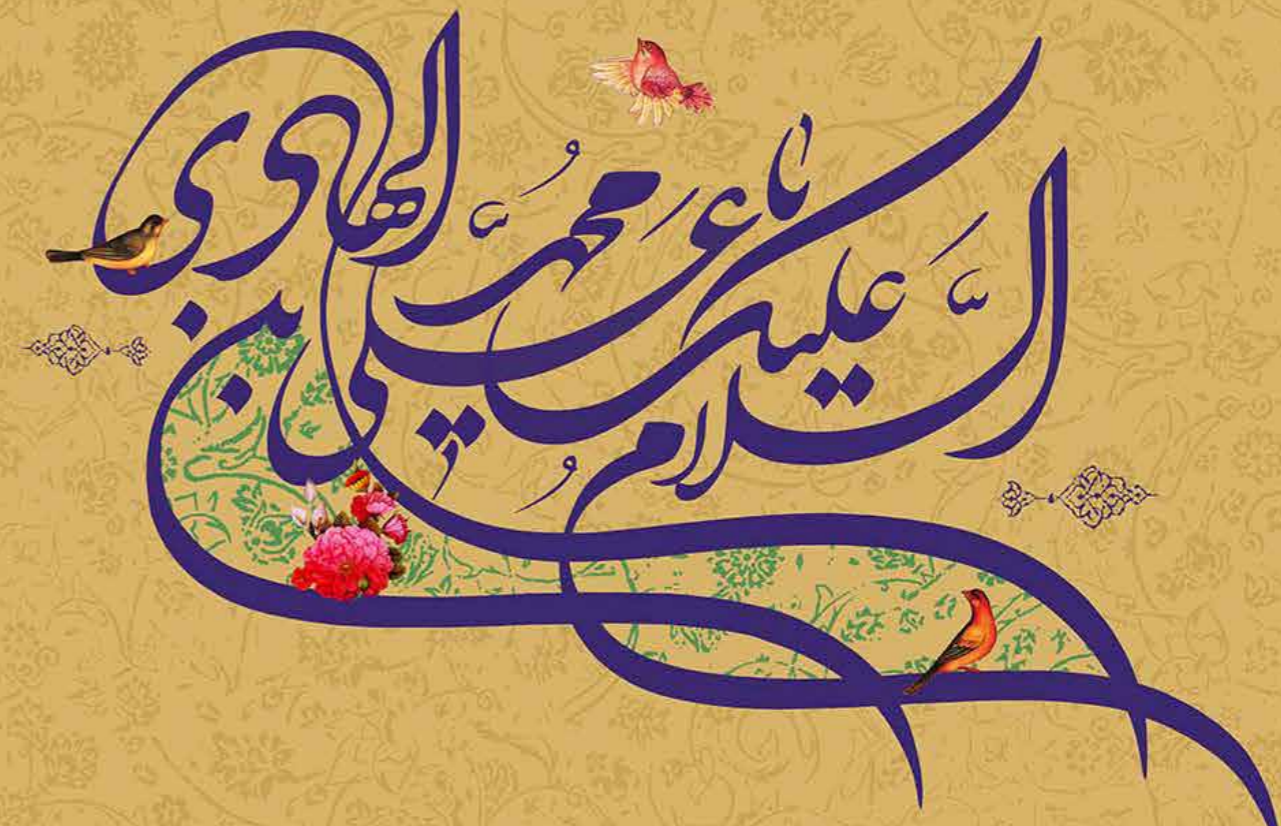 السَّلام علیک یا علی بن محمَّد الهادی